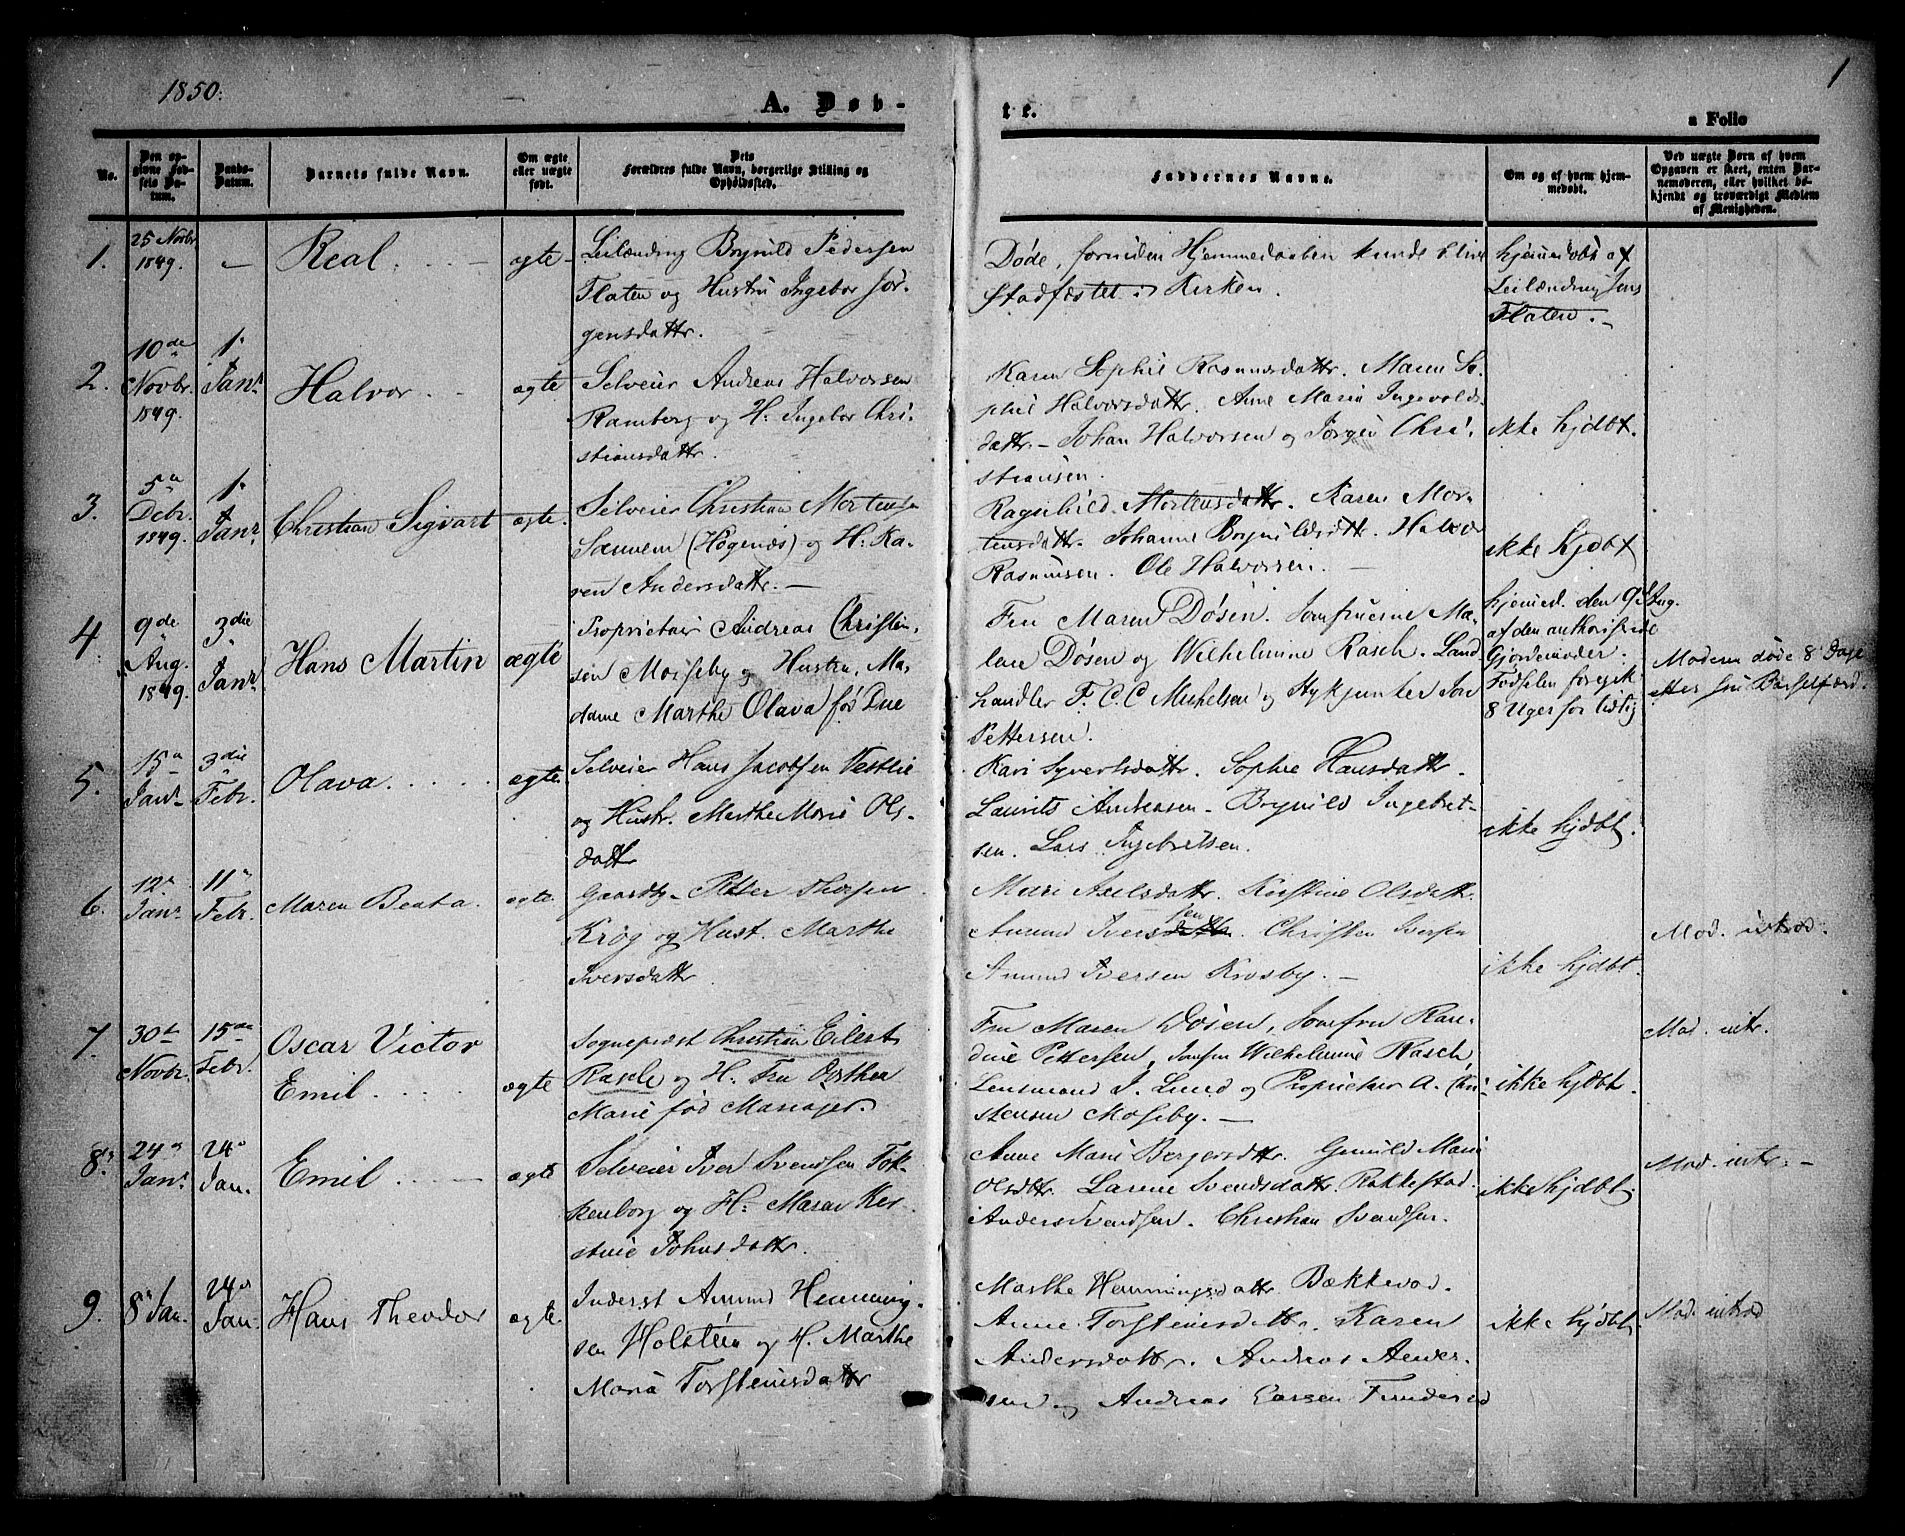 1850.
A. Døb-
te.
1
a Folio
No.
Den op-
givne Fød-
sels Da-
tum.
Daabs-
Datum.
Barnets fulde Navn.
Om ægte
eller uægte
født.
Dets
Forældres fulde Navn, borgerlige Stilling og
Opholdssted.
Faddernes Navne.
Om og af hvem hjem-
medøbt.
Ved uægte Børn af hvem
Opgaven er skeet, enten Bar-
nemoderen, eller hvilket be-
kjendt og troværdigt Medlem
af Menigheden.
1.
25 Novbr
1849.
-
Real.
ægte
Leilænding Brynild Pedersen
Flaten og Hustru Ingebor Jør-
gensdattr.
Døde, forinden Hjemmedaaben kunde blive
stadfæstet i Kirken.
hjemmedøbt af
Leilænding Jens
Flaten.
2.
10de
Novbr.
1849.
1
Janr
Halvor
ægte
Selveier Andreas Halvorsen
Ramberg og H. Ingebor Chri-
stiansdattr.
Karen Sophie Rasmusdattr. Maren So-
phie Halvorsdattr. Anne Maria Ingevolds-
dattr. Johan Halvorsen og Jørgen Chri-
stiansen.
ikke hjdbt.
3.
5
Debr.
1849.
1
Janr.
Christian Sigvart
ægte.
Selveier Christian Mortensen
(Høgenæs) og H. Ka-
ren Andersdattr.
Ragnhild Mortensdattr. Karen Mor-
tensdattr. Johanne Brynildsdtt. Halvor
Rasmusen. Ole Halvorsen.
ikke hjdbt
4
9de
Aug.
1849.
3die
Janr
Hans Martin
ægte
Proprietair Andreas Christen-
sen Moseby og Hustru, Ma-
dame Marthe Olava fød Due
Fru Maren Døsen. Jomfruerne Ma-
lene Døsen og Wilhelmine Rasch. Land-
handler F. C. C. Michelsen og Stykjunker
Pettersen.
hjemmed. den 9de Aug.
af den authoriserede
Gjordemoder.
Fødselen foregik
8 Uger for tidlig
Moderen døde 8 Dage
efter sin Barselfærd.
5.
15
Janr
3die
Febr.
Olava
ægte.
Selveier Hans Jacobsen Vestlie
og Hustr. Marthe Marie Ols-
dattr
Kari Syvertsdattr. Sophie Hansdattr.
Laurits Andersen. Brynild Ingebret-
sen. Lars Ingebretsen.
ikke hjdbt.
6.
12
Janr
11
Febr.
Maren Beata.
ægte.
Gaardbr. Petter Thorsen
Krog og Hust. Marthe
Iversdattr
Mari Axelsdattr. Kirstine Olsdattr.
sen
Amund Iversdattr. Christen Iversen
Amund Iversen Krosby.
ikke hjdbt.
Mod. introd.
7.
30te
Novbr.
15de
Febr.
Oscar Victor
Emil.
ægte
Sognepræst Christian Eilert
Rasch og H. Fru Dorthea
Marie fød Mariager.
Fru Maren Døsen, Jomfru Ran-
dine Pettersen, Jomfru Wilhelmine Rasch
Lensmand J. Lund og Proprietair A. Chri-
stensen Moseby.
ikke hjdbt
Mod. intr.
8.
24
Janr
24
Jan.
Emil
ægte
Selveier Iver Svendsen Fok-
kenborg og H: Maren Kir-
stine Johnsdattr.
Anne Marie Bergersdtt. Gunild Marie
Olsdttr. Larine Svendsdattr. Rakkestad.
Anders Svendsen. Christian Svendsen.
ikke hjdbt.
Mod. intr.
9.
8 Jan.
24
Jan.
Hans Theodor
ægte.
Inderst Amund Henning-
sen Holsteen og H. Marthe
Maria Torsteinsdattr
Marthe Henningsdattr Bækkevad
Anne Torsteinsdattr. Karen
Andersdattr. Andreas Ander-
sen og Andreas Larsen Funderud
ikke hjdbt
Mod. introd